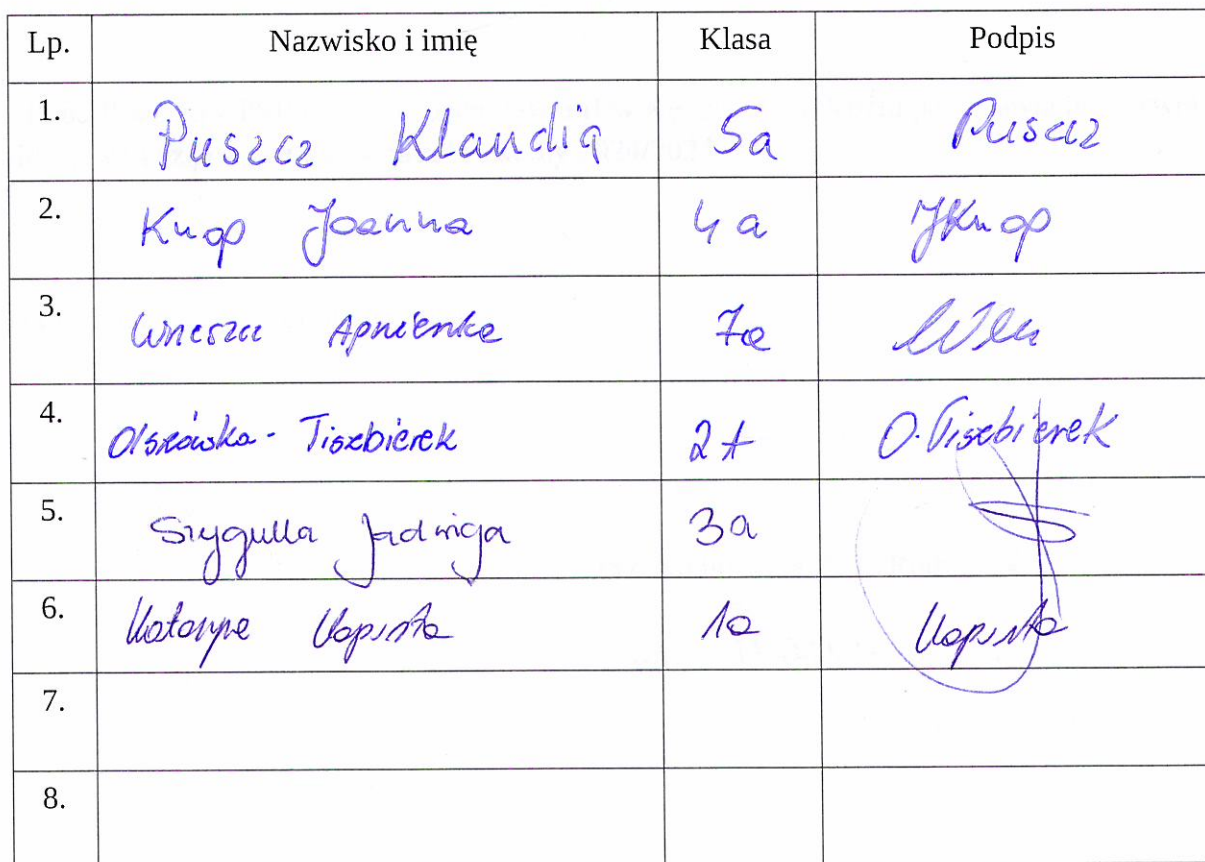 Lp. Nazwisko i imię Klasa Podpis
1. Puszcz Klaudia 5a Puszcz
2. Knop Joanna 4a JKnop
3. 7a
4. Olszówka - Tiszbierek 2A O. Tiszbierek
5. Szygulla Jadwiga 3a
6. Katarzyna Kapusta 1a Kapusta
7.
8.